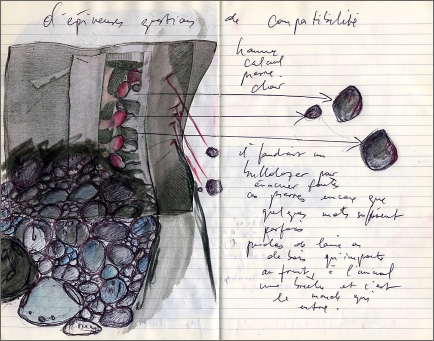 d'épineuses questions de compatibilité
hanne
calcul
pierre
chair
il faudrait un
bulldozer pour
évacuer toutes
ces pierres encore que
quelques mots suffisent
parfois
perdus de laine ou
de bois qu'importe
au fruit, à l'animal
une brèche et c'est
le monde qui
entre.